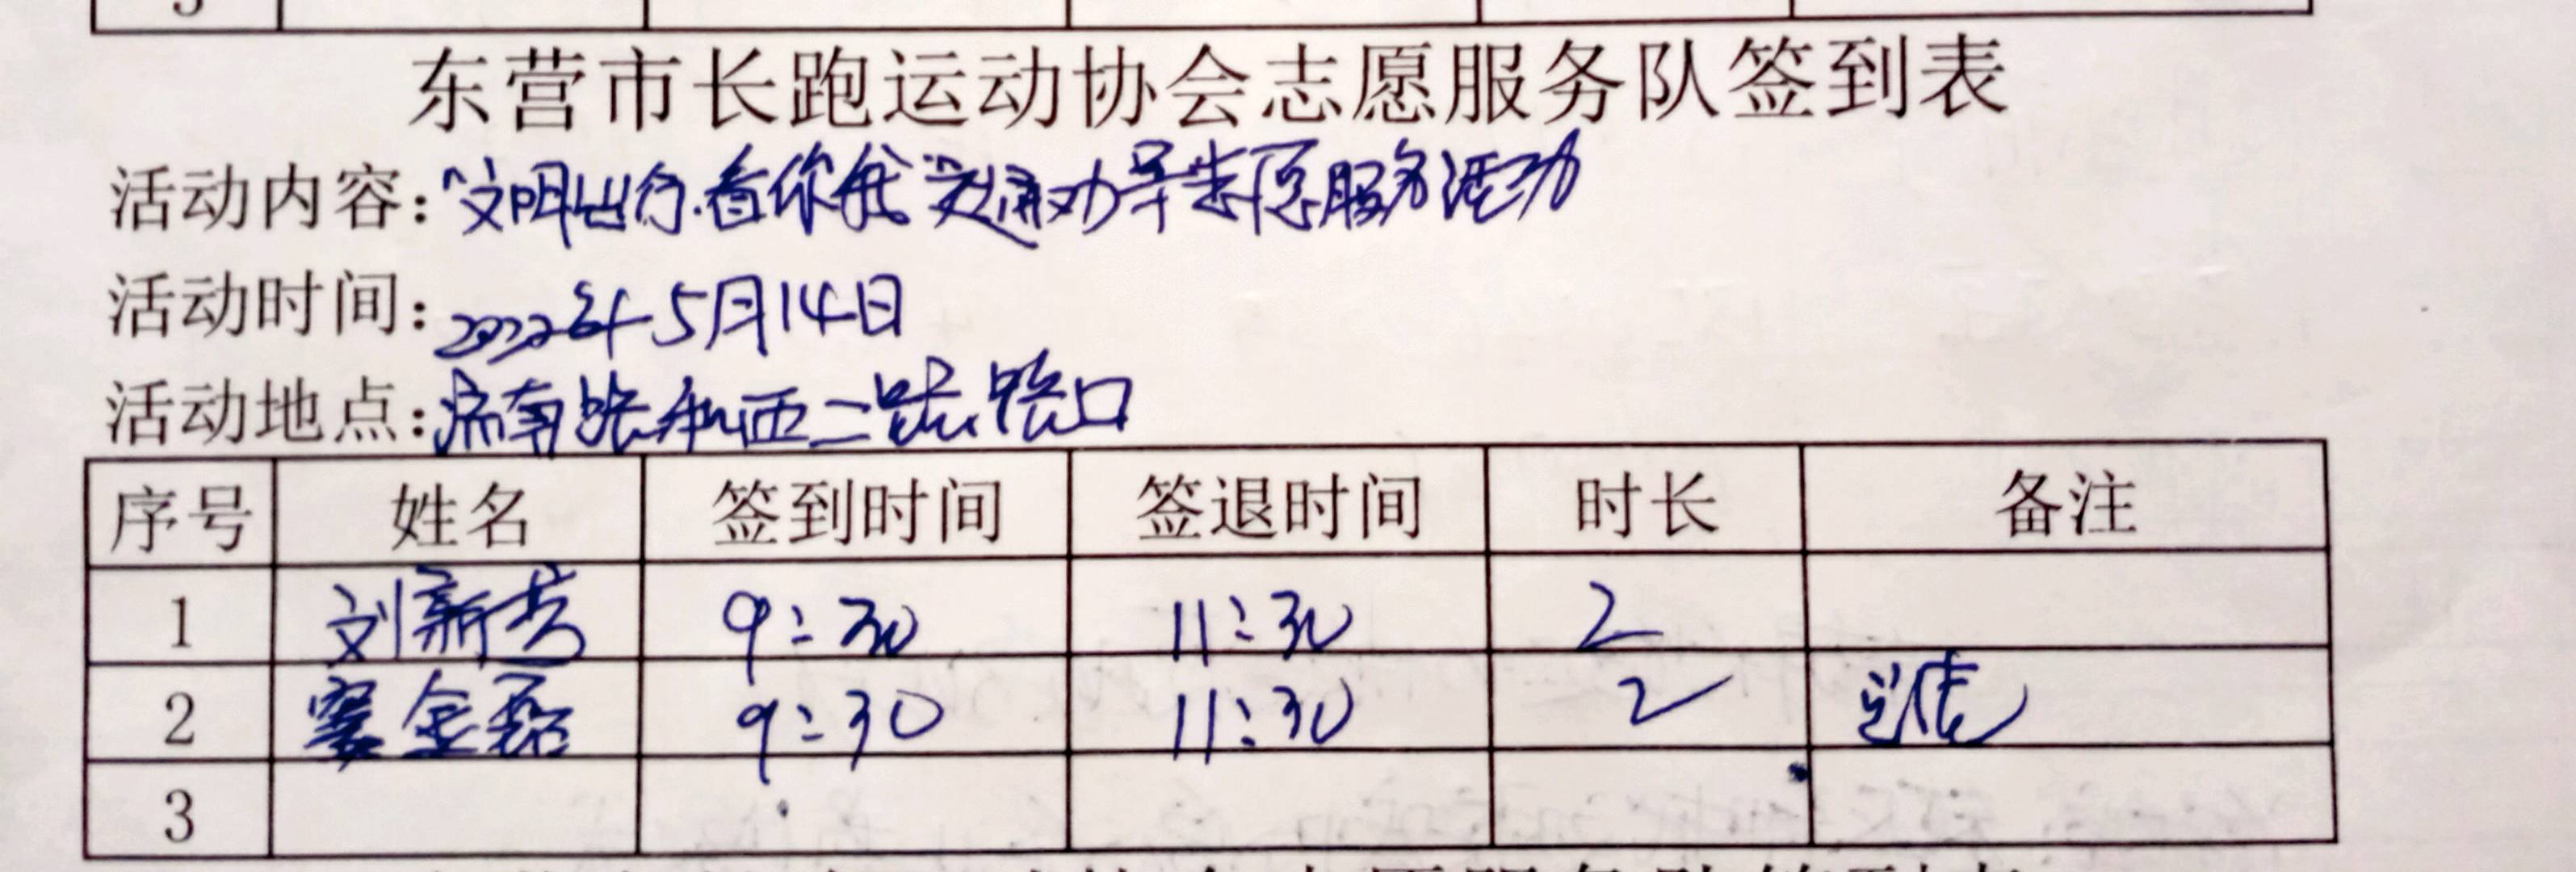 东营市长跑运动协会志愿服务队签到表
活动内容："文明出行.看你我"交通劝导志愿服务活动
活动时间：2022年5月14日
活动地点：济南路和西二路路口
序号 姓名 签到时间 签退时间 时长 备注
1 刘新 9:30 11:30 2
2 金磊 9:30 11:30 2
3